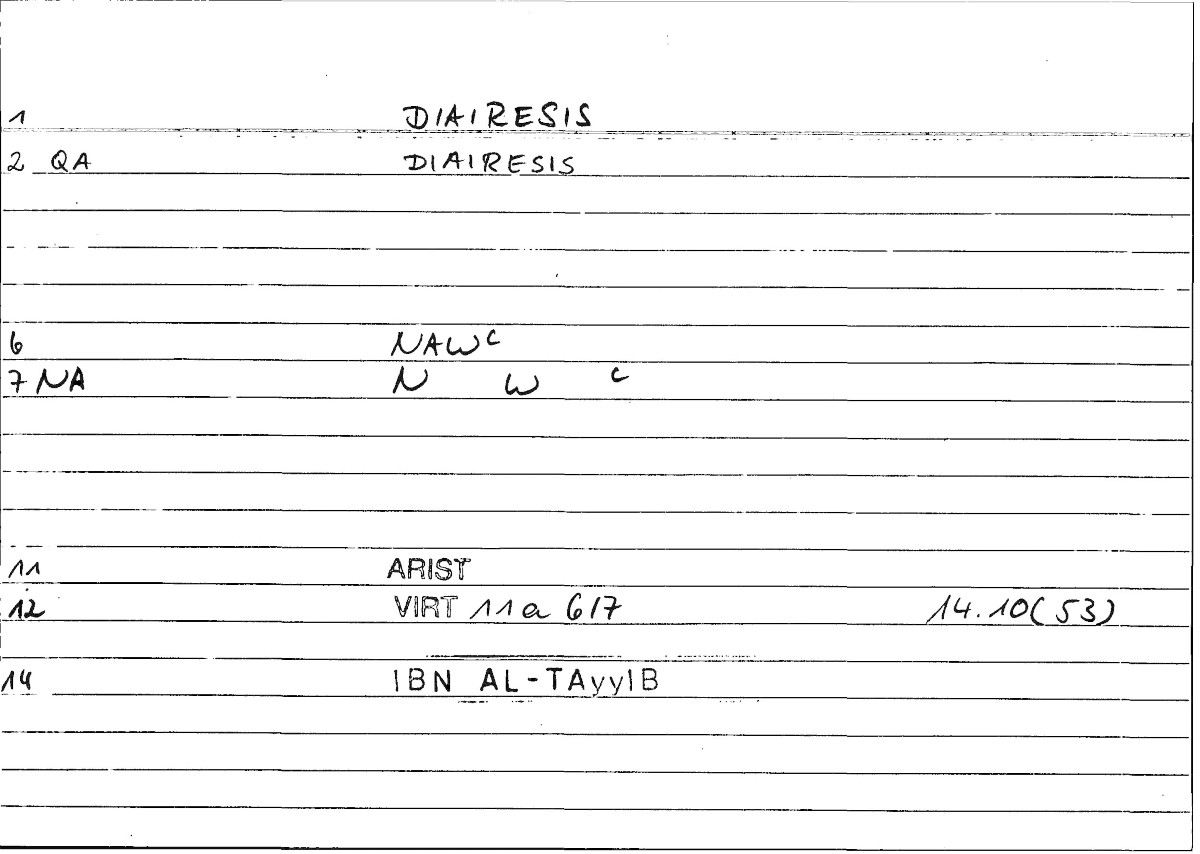 1 DIAIRESIS
2 QA DIAIRESIS
6 NAWᶜ
7 NA N W ᶜ
11 ARIST
12 VIRT 11a 6/7 14.10(53)
14 IBN AL-TAyyIB